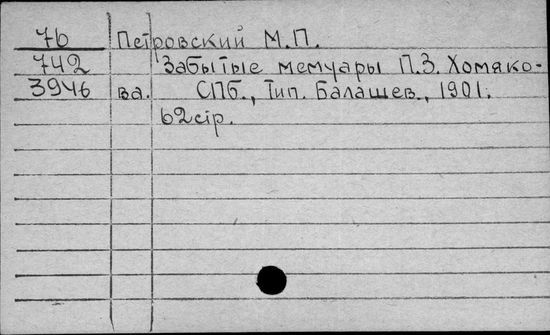 76 Петровский М.П.
742 Забытые мемуары П.З. Хомяко-
3946 ва. СПб., Тип. Балашев., 1901.
62 стр.